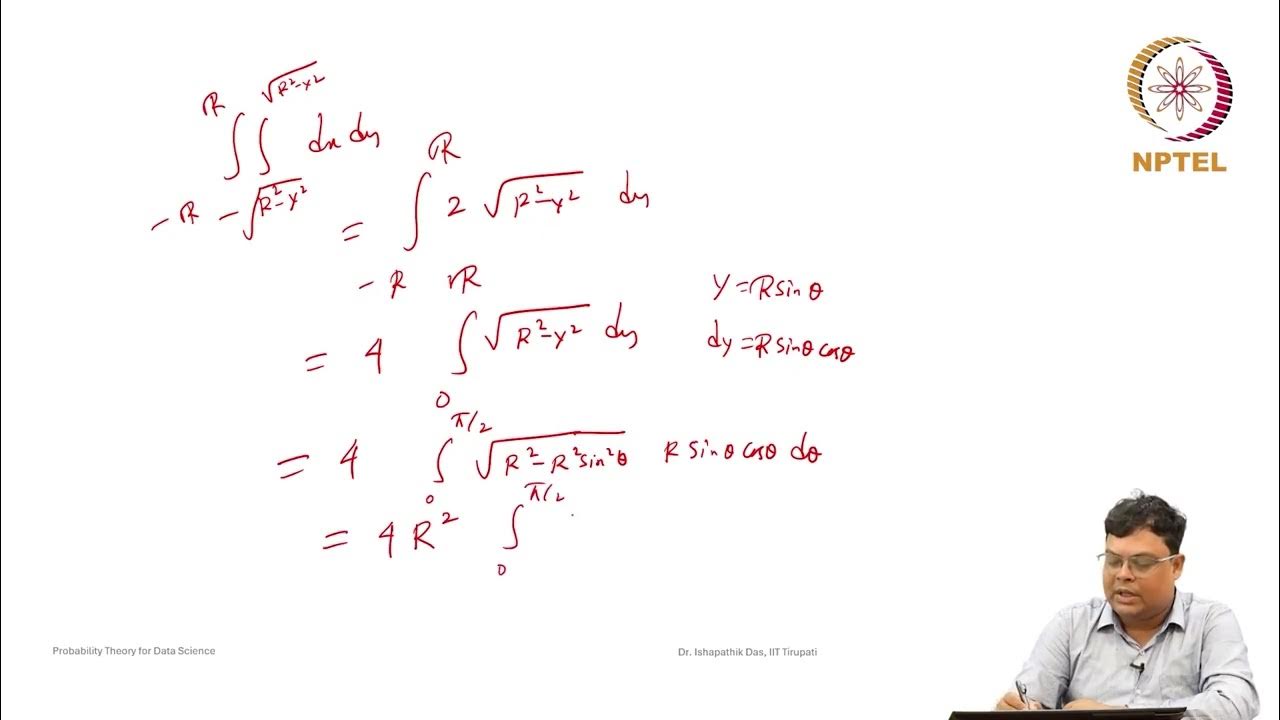 ∫_{-R}^{R} ∫_{-√(R²-y²)}^{√(R²-y²)} dx dy
= ∫_{-R}^{R} 2 √(R²-y²) dy
= 4 ∫_{0}^{R} √(R²-y²) dy
y = R sin θ
dy = R sin θ cos θ
= 4 ∫_{0}^{π/2} √(R² - R² sin² θ) R sin θ cos θ dθ
= 4 R² ∫_{0}^{π/2}
NPTEL
Probability Theory for Data Science
Dr. Ishapathik Das, IIT Tirupati